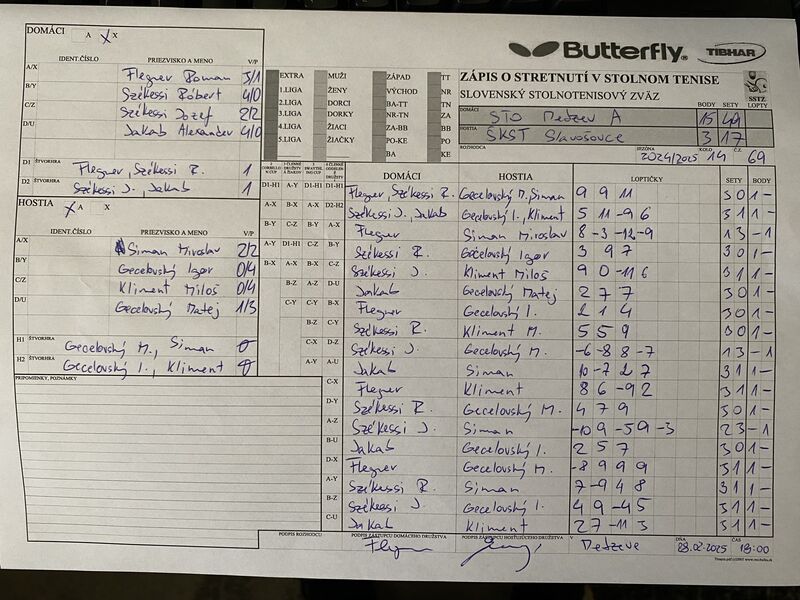 DOMÁCI A X
IDENT.ČÍSLO PRIEZVISKO A MENO V/P
A/X Flegner Roman 3/1
B/Y Székessi Róbert 4/0
C/Z Székessi Jozef 2/2
D/U Jakab Alexander 4/0
D1 ŠTVORHRA Flegner, Székessi R. 1
D2 ŠTVORHRA Székessi J., Jakab 1
HOSTIA X A
IDENT.ČÍSLO PRIEZVISKO A MENO V/P
A/X Siman Miroslav 2/2
B/Y Gecelovský Igor 0/4
C/Z Kliment Miloš 0/4
D/U Gecelovský Matej 1/3
H1 ŠTVORHRA Gecelovský M., Siman 0
H2 ŠTVORHRA Gecelovský I., Kliment 0
PRIPOMIENKY, POZNÁMKY
EXTRA MUŽI ZÁPAD TT
1.LIGA ŽENY VÝCHOD NR
2.LIGA DORCI BA-TT TN
3.LIGA DORKY NR-TN ZA
4.LIGA ŽIACI ZA-BB BB
5.LIGA ŽIAČKY PO-KE PO
BA KE
Butterfly. TIBHAR
ZÁPIS O STRETNUTÍ V STOLNOM TENISE
SLOVENSKÝ STOLNOTENISOVÝ ZVÄZ
SSTZ
DOMÁCI STO Medzev A BODY 15 SETY 49
HOSTIA ŠKST Slavošovce 3 17 LOPTY
ROZHODCA SEZÓNA 2024/2025 KOLO 14 Č.Z. 69
DOMÁCI HOSTIA LOPTIČKY SETY BODY
D1-H1 Flegner, Székessi R. Gecelovský M., Siman 9 9 11 3 0 1 -
D2-H2 Székessi J., Jakab Gecelovský I., Kliment 5 11 -9 6 3 1 1 -
A-X Flegner Siman Miroslav 8 -3 -12 -9 1 3 - 1
B-Y Székessi R. Gecelovský Igor 3 9 7 3 0 1 -
C-Z Székessi J. Kliment Miloš 9 0 -11 6 3 1 1 -
D-U Jakab Gecelovský Matej 2 7 7 3 0 1 -
B-X Flegner Gecelovský I. 2 1 4 3 0 1 -
C-Y Székessi R. Kliment M. 5 5 9 3 0 1 -
D-Z Székessi J. Gecelovský M. -6 -8 8 -7 1 3 - 1
A-U Jakab Siman 10 -7 2 7 3 1 1 -
C-X Flegner Kliment 8 6 -9 2 3 1 1 -
D-Y Székessi R. Gecelovský M. 4 7 9 3 0 1 -
A-Z Székessi J. Siman -10 9 -5 9 -3 2 3 - 1
B-U Jakab Gecelovský I. 2 5 7 3 0 1 -
D-X Flegner Gecelovský M. -8 9 9 9 3 1 1 -
A-Y Székessi R. Siman 7 -9 4 8 3 1 1 -
B-Z Székessi J. Gecelovský I. 4 9 -4 5 3 1 1 -
C-U Jakab Kliment 2 7 -11 3 3 1 1 -
PODPIS ROZHODCU PODPIS ZÁSTUPCU DOMÁCEHO DRUŽSTVA PODPIS ZÁSTUPCU HOSŤUJÚCEHO DRUŽSTVA V Medzeve DŇA 28.02.2025 ČAS 18:00